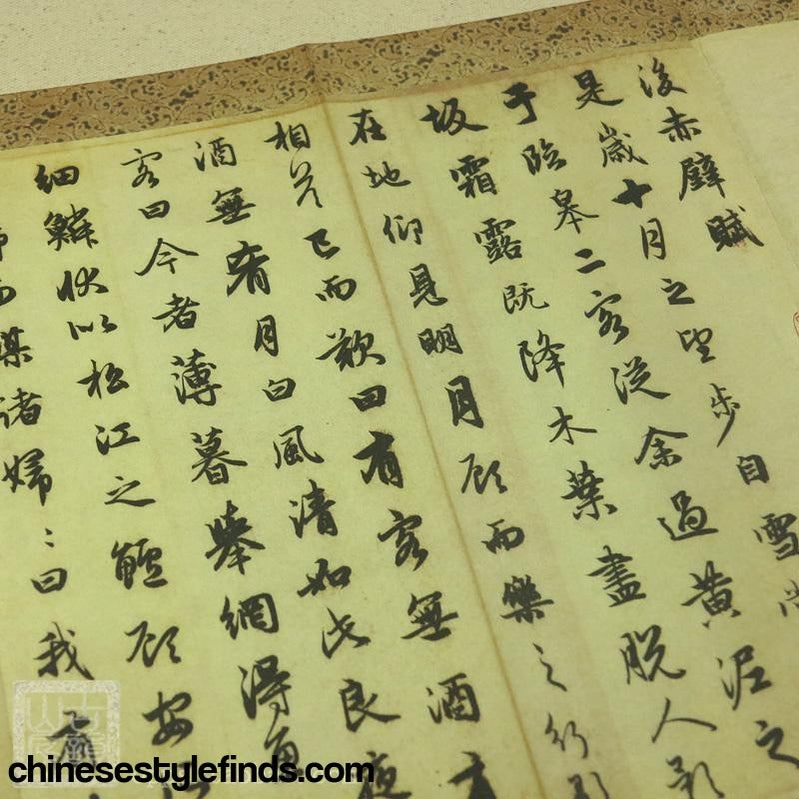 後赤壁賦
是歲十月之望步自雪
于臨皋二客從余過黃泥之
坂霜露既降木葉盡脫人影
在地仰見明月顧而樂之行歌
相答已而歎曰有客無酒有
酒無肴月白風清如此良夜
客曰今者薄暮舉網得魚
細鱗狀似松江之鱸顧安所
歸而謀諸婦〻曰我有
chinesestylefinds.com